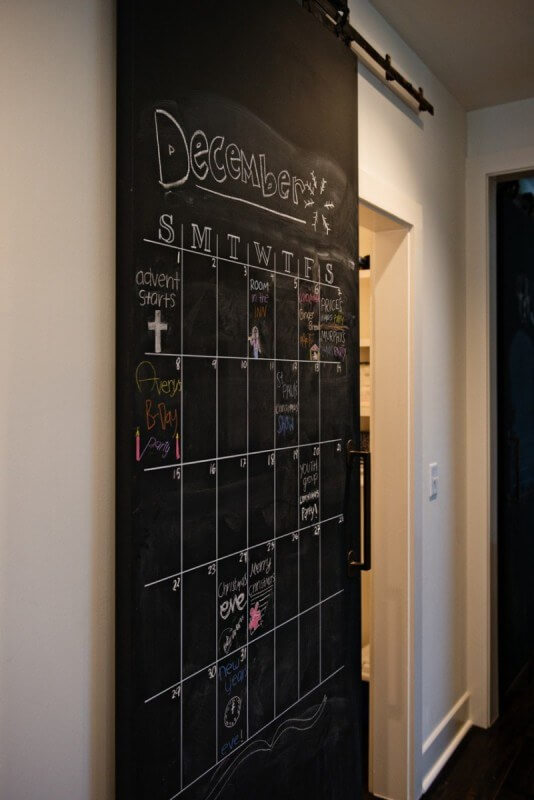 December
S M T W T F S
1 2 3 4 5 6 7
advent
starts
ROOM
in the
INN
PRICES
PARTY
MURPHYS
PARTY
8 9 10 11 12 13 14
Avery's
B-Day
Party
St. Paul's
Christmas
SHOW
15 16 17 18 19 20 21
YOUTH
group
Christmas
Party!
22 23 24 25 26 27 28
Christmas
eve
Merry
Christmas
29 30 31
new
year's
eve!